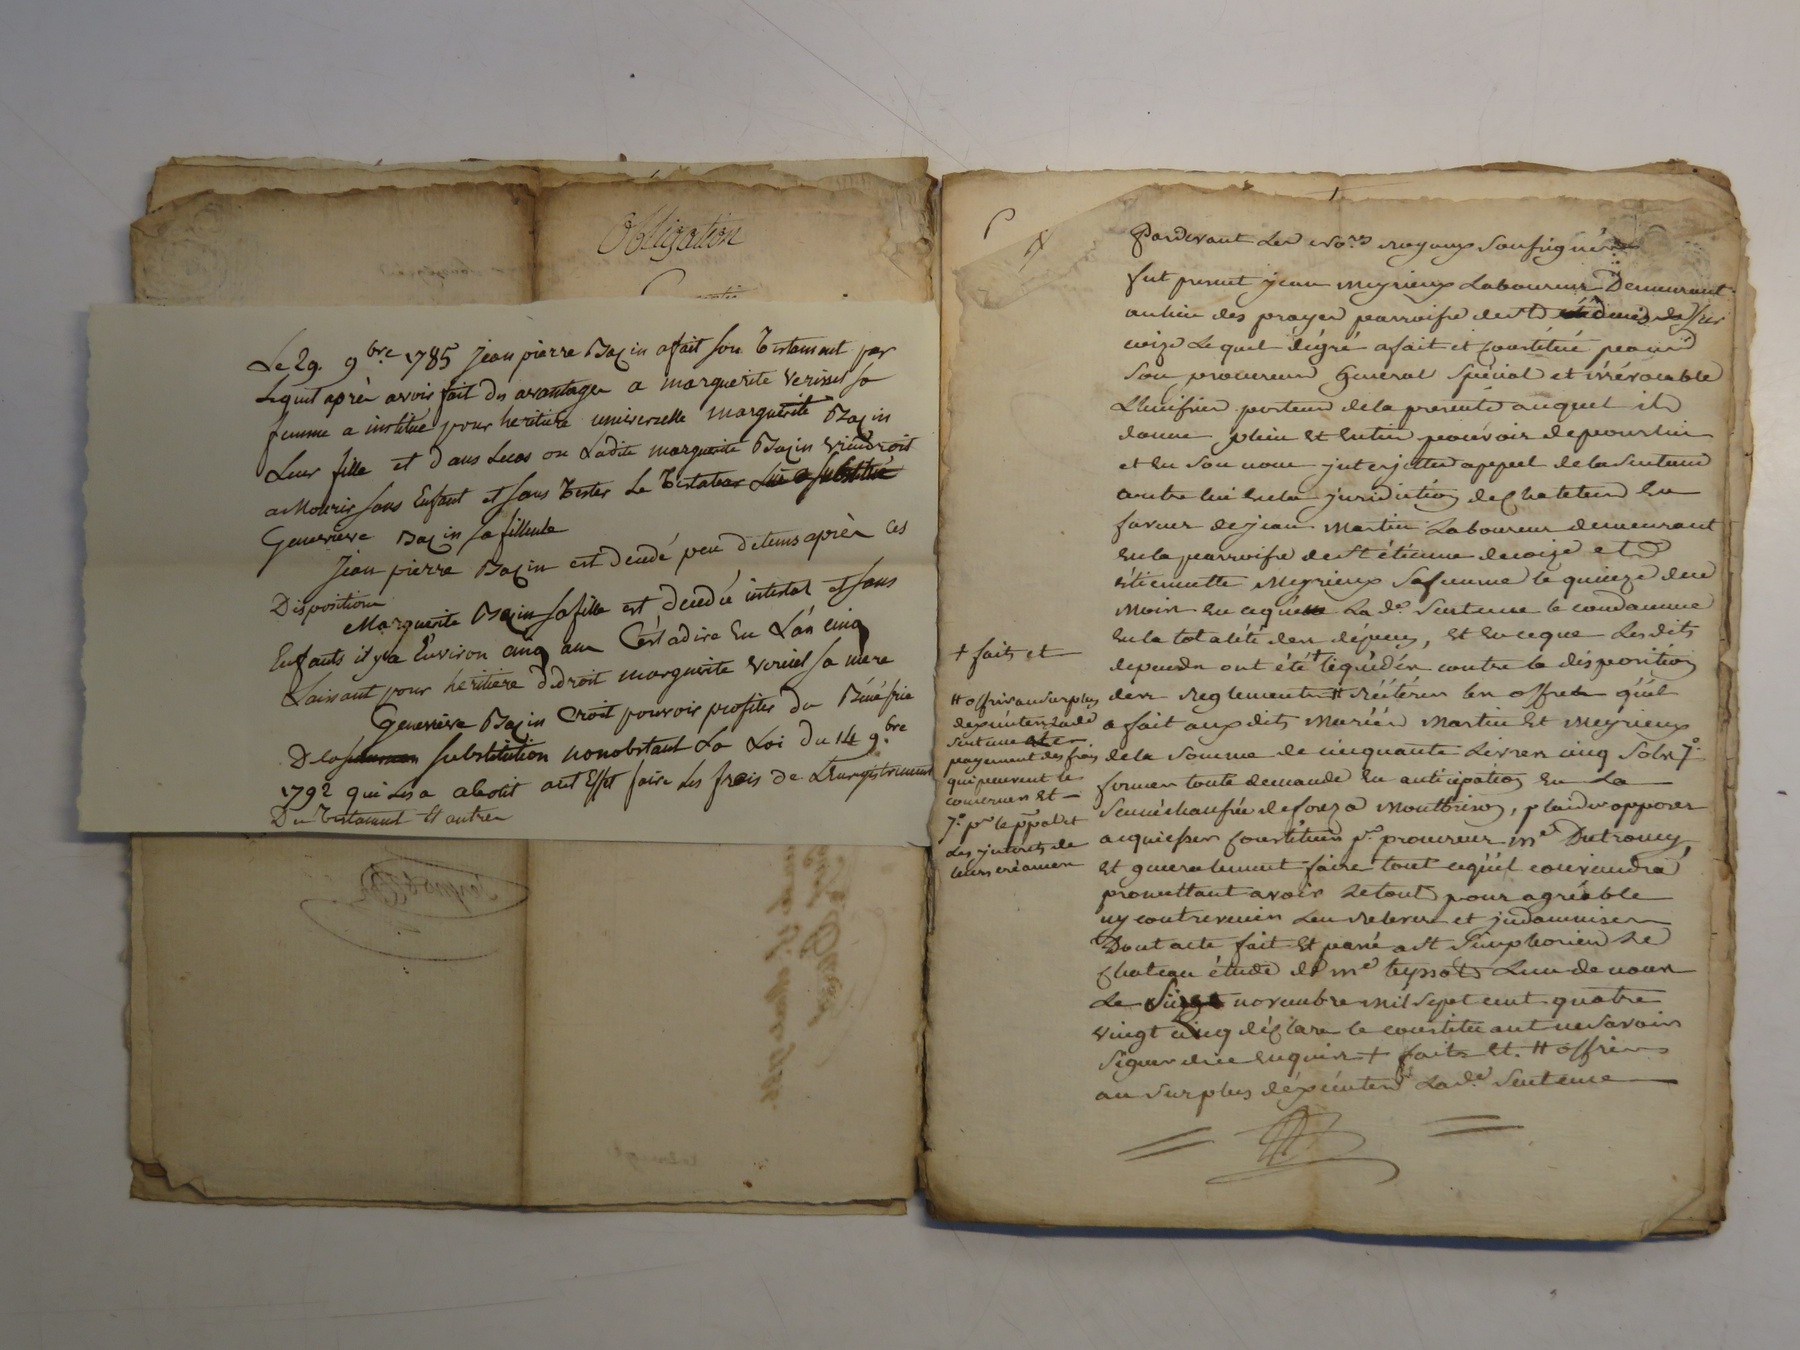 Obligation
Le 29. 9bre 1785 jean pierre Bazin a fait son Testament par
Lequel après avoir fait des avantages a marguerite verissel sa
femme a institué pour heritiere universelle marguerite Bazin
Leur fille et dans Lecas ou Ladite marguerite Bazin viendroit
a Mourir sans Enfant et sans Tester Le Testateur Lui a substitué
Genevieve Bazin sa filleule
Jean pierre Bazin est décédé peu detems après ces
Dispositions
Marguerite Bazin sa fille est décédée intestat et sans
Enfants il y a Environ cinq ans C'est adire En L'an cinq
Laissant pour heritiere dedroit marguerite verissel sa mere
Genevieve Bazin Croit pouvoir profiter du Bénéfice
De la substitution nonobstant La Loi du 14 9.bre
1792 qui Les a abolit aut Effet faire Les frais de L'enregistrement
Du Testament Et autres
Pardevant Les No.res royaux soussignés
fut present jean meyrieux Laboureur Demeurant
au lieu des prayes parroisse de St
coize Lequel degré a fait et constitué pour
son procureur General special et irrévocable
L'huissier porteur de la presente auquel il
donne plein et entier pouvoir de pour lui
et en son nom interjetter appel de la sentence
contre lui en la juridiction de chatelus en
faveur de jean Martin Laboureur demeurant
en la parroisse de St étienne de coize et
étiennette Meyrieux sa femme le quinze du
mois en ce que La de. sentence le condamne
en la totalité des dépens, et en ce que Lesdits
depends ont été + liquidés contre la disposition
des reglements # réitérer les offres qu'il
a fait aux dits mariés Martin et Meyrieux
de la somme de cinquante Livres cinq sols 7°.
former toute demande en anticipation en La
senechaussée de forez a Montbrison, plaider opposer
acquiesser constituer p.r procureur m.e Dutroncy,
et generalement faire tout ce qu'il conviendra
promettant avoir Le tout pour agréable
ny contrevenir Les relever et indamniser
Dont acte fait et passé a St simphorien Le
chateau étude de m.e teyssot L'un de nous
Le novembre mil sept cent quatre
vingt cinq déclare le constituant ne savoir
signer de ce enquis + faits et. # offrir
au surplus d'éxécuter La de. sentence
+ faits et
# offrir au surplus
d'éxécuter La de
sentence
payement des frais
qui peuvent le
concerner et
7°. p.r le p.pal et
Les interets de
leurs créances